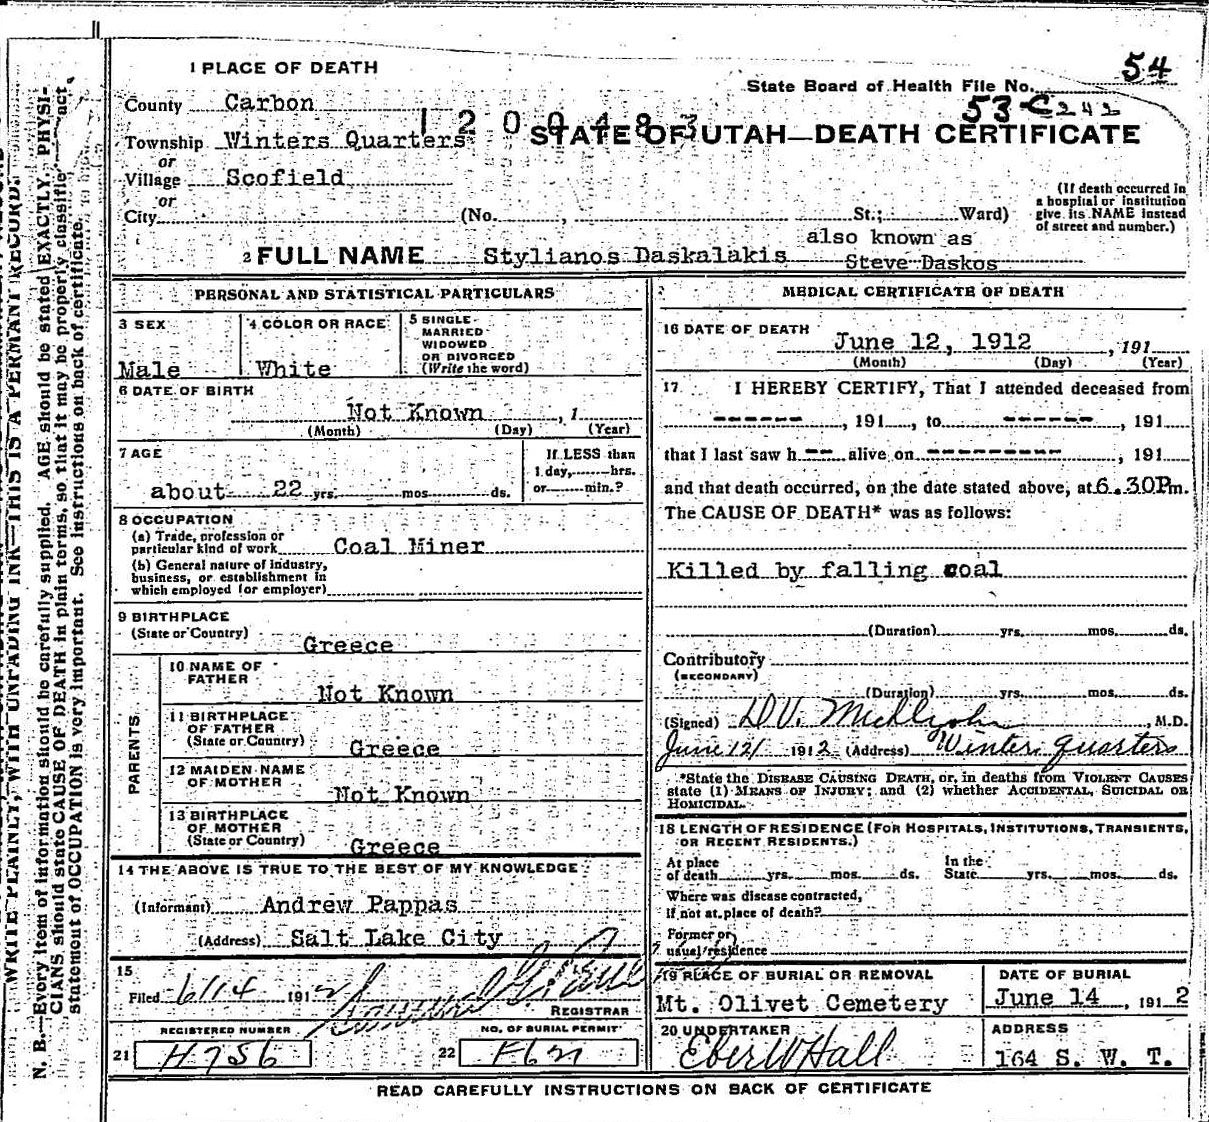 54
1 PLACE OF DEATH
State Board of Health File No.
53-C 242
County Carbon
1200483
STATE OF UTAH—DEATH CERTIFICATE
Township Winters Quarters
or
Village Scofield
or
City (No. , St.; Ward)
(If death occurred in a hospital or institution give its NAME instead of street and number.)
2 FULL NAME Stylianos Daskalakis also known as Steve Daskos
PERSONAL AND STATISTICAL PARTICULARS
3 SEX
Male
4 COLOR OR RACE
White
5 SINGLE
MARRIED
WIDOWED
OR DIVORCED
(Write the word)
6 DATE OF BIRTH
Not Known , 1
(Month) (Day) (Year)
7 AGE
about 22 yrs. mos. ds.
If LESS than
1 day, hrs.
or min.?
8 OCCUPATION
(a) Trade, profession or
particular kind of work Coal Miner
(b) General nature of industry,
business, or establishment in
which employed (or employer)
9 BIRTHPLACE
(State or Country)
Greece
PARENTS
10 NAME OF
FATHER
Not Known
11 BIRTHPLACE
OF FATHER
(State or Country) Greece
12 MAIDEN NAME
OF MOTHER
Not Known
13 BIRTHPLACE
OF MOTHER
(State or Country) Greece
14 THE ABOVE IS TRUE TO THE BEST OF MY KNOWLEDGE
(Informant) Andrew Pappas
(Address) Salt Lake City
15
Filed 6/14 1912
REGISTRAR
REGISTERED NUMBER
21 H756
NO. OF BURIAL PERMIT
22
MEDICAL CERTIFICATE OF DEATH
16 DATE OF DEATH
June 12, 1912 , 191
(Month) (Day) (Year)
17 I HEREBY CERTIFY, That I attended deceased from
------ , 191 , to ------ , 191
that I last saw h-- alive on --------- , 191
and that death occurred, on the date stated above, at 6.30P m.
The CAUSE OF DEATH* was as follows:
Killed by falling coal
(Duration) yrs. mos. ds.
Contributory
(SECONDARY)
(Duration) yrs. mos. ds.
(Signed) , M.D.
June 12/ 1912 (Address) Winter Quarters
*State the DISEASE CAUSING DEATH, or, in deaths from VIOLENT CAUSES
state (1) MEANS OF INJURY; and (2) whether ACCIDENTAL, SUICIDAL OR
HOMICIDAL.
18 LENGTH OF RESIDENCE (FOR HOSPITALS, INSTITUTIONS, TRANSIENTS,
OR RECENT RESIDENTS.)
At place
of death yrs. mos. ds.
In the
State yrs. mos. ds.
Where was disease contracted,
If not at place of death?
Former or
usual residence
19 PLACE OF BURIAL OR REMOVAL
Mt. Olivet Cemetery
DATE OF BURIAL
June 14 , 1912
20 UNDERTAKER
Eber W Hall
ADDRESS
164 S. W. T.
READ CAREFULLY INSTRUCTIONS ON BACK OF CERTIFICATE
WRITE PLAINLY, WITH UNFADING INK—THIS IS A PERMANT RECORD.
N. B.—Every item of information should be carefully supplied. AGE should be stated EXACTLY. PHYSI-
CIANS should state CAUSE OF DEATH in plain terms, so that it may be properly classified.
statement of OCCUPATION is very important. See instructions on back of certificate.